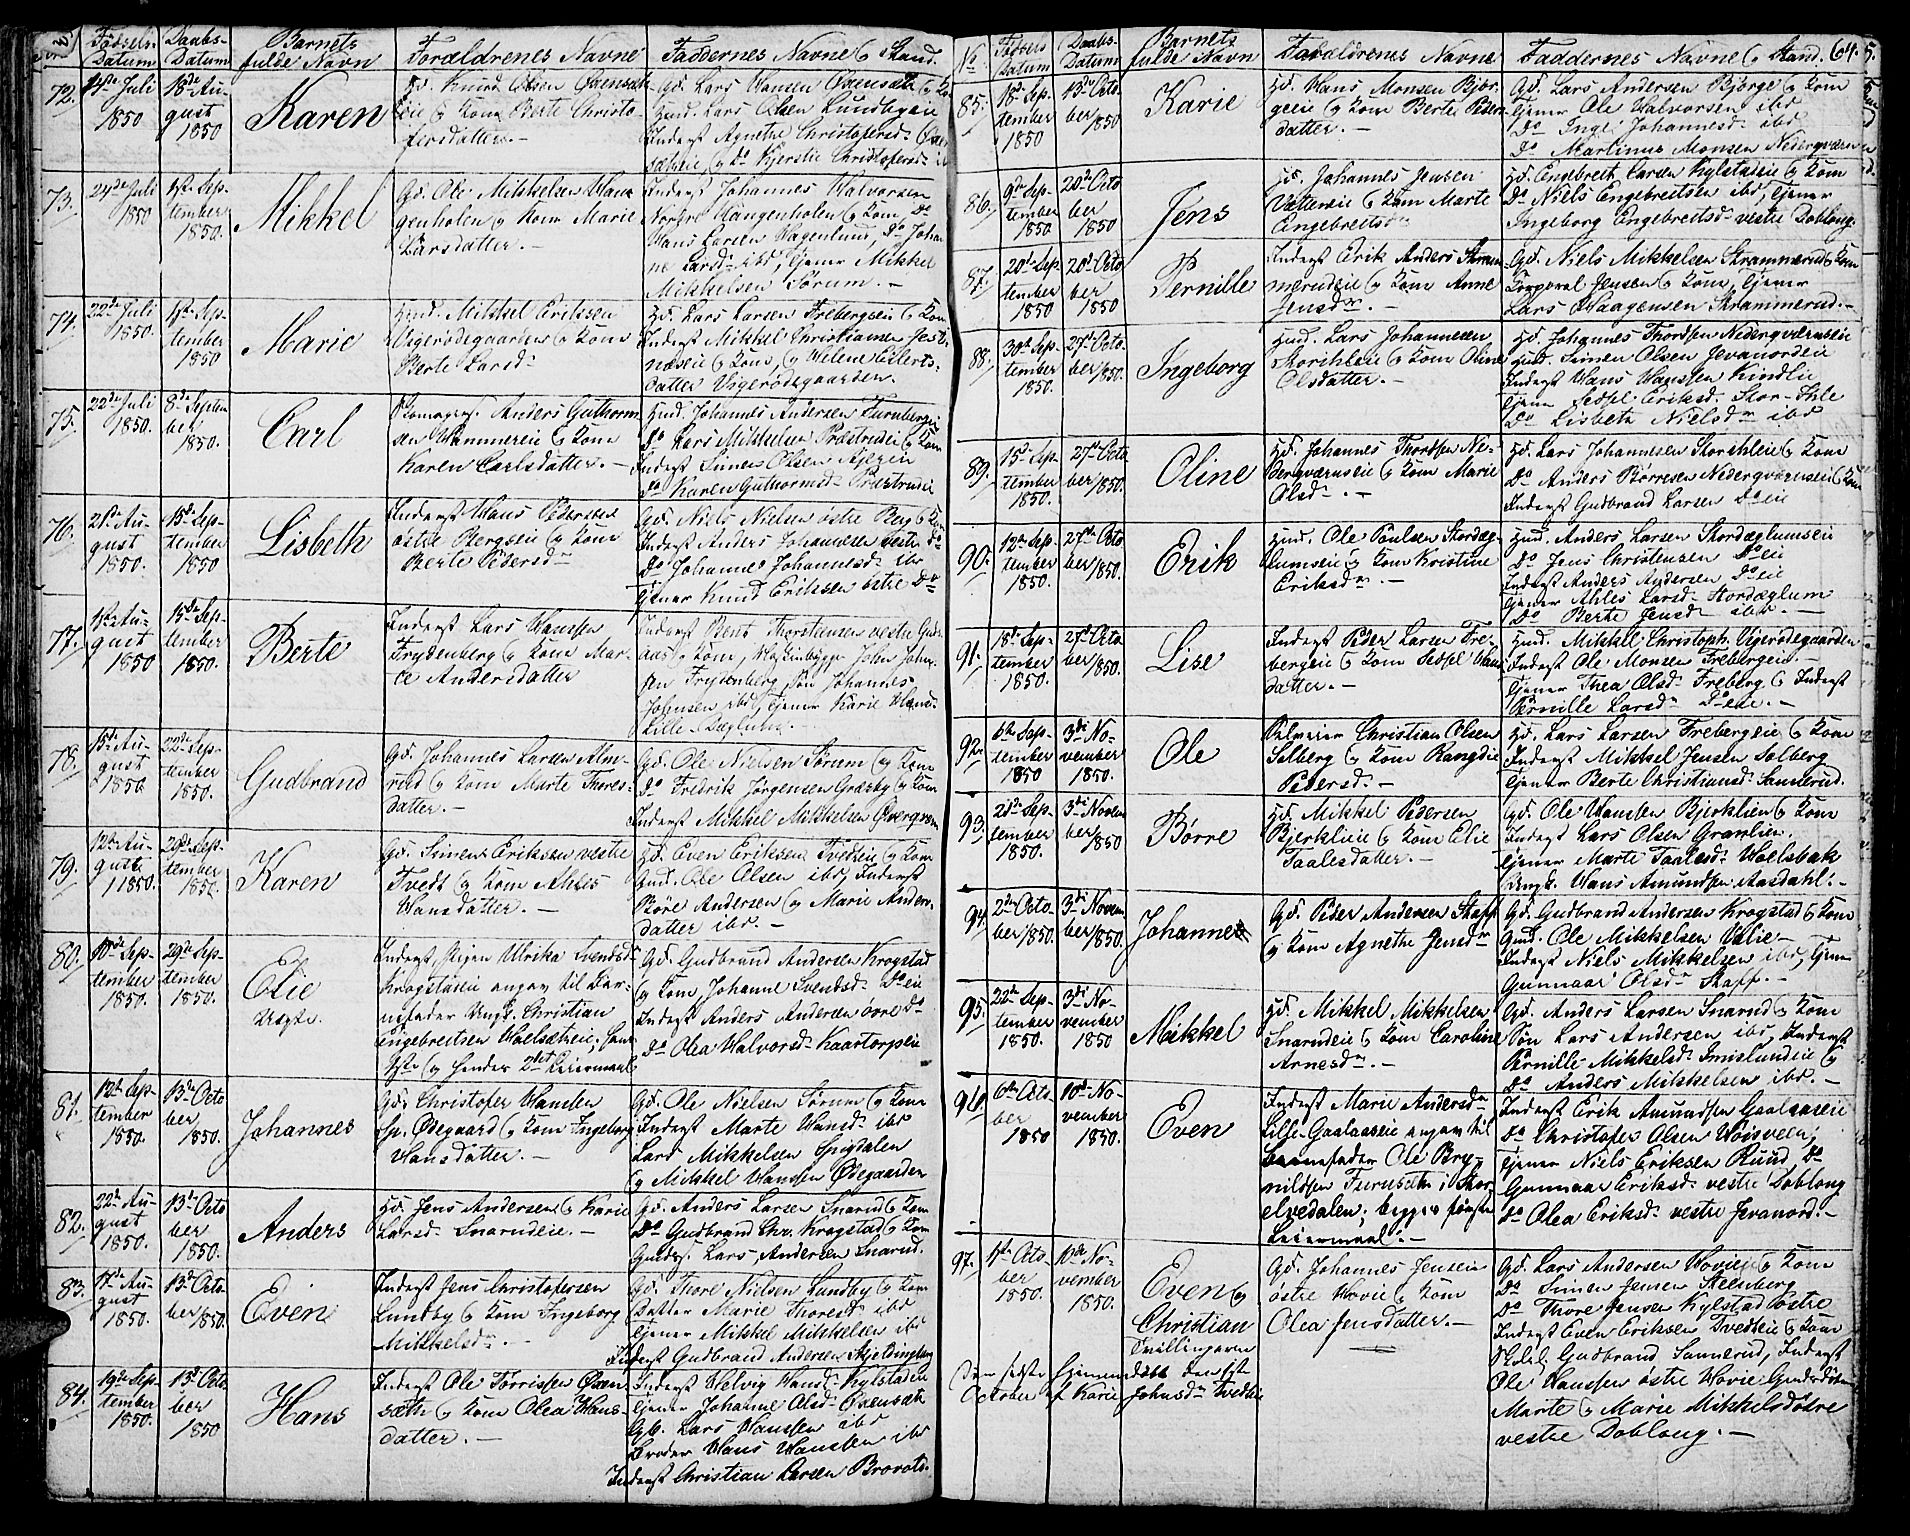 No
Fødsels-
Datum
Daabs-
Datum
Barnets
fulde Navn
Forældrenes Navne
Faddernes Navne og Stand.
72.
Juli
1850
18de Au-
gust
1850
Karen
Hd. Knud Olsen Øvensæt-
eie og Kone Berte Christo-
fersdatter. —
Gd. Lars Hansen Øvensæt og Ko
Huusd. Lars Olsen Lundbyeie
Inderst Agnethe Christofersd. Øven
sæteie, og Do Kjerstie Christofersd. ib
73.
24de Juli
1850
1ste Sep-
tember
1850.
Mikkel
Gd. Ole Mikkelsen Hau
genholen og Kone Marie
Larsdatter. —
Inderst Johannes Halvorsen
Nordre Haugenholen og Kone, Do
Hans Larsen Hagenlund, Do Johan
ne Larsd. ibd, Tjener Mikkel
Mikkelsen Sørum. —
74.
22de Juli
1850.
1ste Sep-
tember
1850
Marie
Huusd. Mikkel Eriksen
Vigerødegaarden og Kone
Berte Larsd.
Hd. Lars Larsen Frebergeie og Kone
Inderst Mikkel Christiansen Jest-
næseie og Kone, og Helene Eilerts-
datter Vigerødegaarden.
75.
22de Juli
1850.
8de Septem
ber
1850.
Carl
Anders Guthorm
sen Hammereie og Kone
Karen Carlsdatter. —
Huusd. Johannes Andersen Furubergeie
Do Lars Mikkelsen Præstrudeie og Kone
Inderst Simen Olsen
Do Karen Guthormsd. Præstrudeie
76.
21de Au-
gust
1850.
15de Sep-
tember
1850
Lisbeth
Inderst Hans Pedersen
østre Bergseie og Kone
Berte Pedersd.
Gd. Niels Nielsen østre Berg og Kone
Inderst Anders Johannesen vestre Do
Do Johanne Johannesd. ibr
Tjener Knud Eriksen østre Do
77.
1ste Au-
gust
1850
15de Sep-
tember
1850.
Berte
Inderst Lars Hanssen
Frydenberg og Kone Mar-
te Andersdatter
Inderst Bent Thorstensen vestre Gud-
aas og Kone, John John-
sen Frydenberg Søn Johannes
Johnsen ibd, Tjener Karie Hansd.
Lille-Dæglum. —
78.
15de Au-
gust
1850
22de Sep-
tember
1850.
Gudbrand
Gd. Johannes Larsen Alm-
rud og Kone Marte Thores-
datter. —
Gd. Ole Nielsen Sørum og Kone
Do Fredrik Jørgensen Græsby og Kone
Inderst Mikkel Mikkelsen Øvergvern
79.
12te Au-
gust
1850.
29de Sep-
tember
1850.
Karen
Gd. Simen Eriksen vestre
Tvedt og Kone Ahles
Hansdatter. —
Hd. Even Eriksen Tvedteie og Kone
Gud. Ole Olsen ibd, Inderst
Tore Andersen og Marie Anders-
datter ibr. —
80.
10de Sep-
tember
1850.
29de Sep-
tember
1850.
Elie
Uægte.
Inderst, Pigen Ulrika Svendsd.
Krogstadeie angav til Bar-
nefader Ungk. Christian
Engebreitsen Hoelsætreie; hans
1ste og hendes 2det Leiermaal
Gd. Gudbrand Andersen Krogstad
og Kone, Johanne Svendsd. Do eie
Inderst Anders Andersen øvre Do
Do Olea Halvorsd. Kaartorpeie
81.
12te Sep-
tember
1850.
13de Octo
ber
1850.
Johannes
Gd. Christofer Hansen
Sp. Ødegaard og Kone Ingeborg
Hansdatter. —
Gd. Ole Nielsen Sørum og Kone
Inderst Marte Hansd. ibr
Lars Mikkelsen Spigdalen
og Mikkel Hansen Ødegaarden
82.
22de Au-
gust
1850.
13de Octo
ber
1850.
Anders
Hd. Jens Andersen og Karie
Larsd. Snarudeie. —
Gd. Anders Larsen Snarud og Kone
Do Gudbrand Chr. Krogstad og Kone
Lars Andersen Snarud.
83.
17de Au-
gust
1850.
13de Octo
ber 1850.
Even
Inderst Jens Christofersen
Lundby og Kone Ingeborg
Mikkelsdr. —
Gd. Thore Nielsen Lundby og Kone
Datter Marie Thoresd. ibr
Tjener Mikkel Mikkelsen ibr
Inderst Gudbrand Andersen Skjeldingberg
84.
19de Sep-
tember
1850.
13de Octo
ber
1850
Hans
Inderst Ole Torrissen Øven
sæth og Kone Olea Hans-
datter. —
Inderst Helvig Hansd. Kylstadeie
Tjener Johanne Olsd. Øvensæth
Gd. Lars Hanssen ibr
Broder Hans Hanssen ibr
Inderst Christian Larsen Brovold.
No
Fødsels
Datum
Daabs-
Datum
Barnets
fulde Navn
Forældrenes Navne
Faddernes Navne og Stand.
64.
85.
18de Sep-
tember
1850
13de Octo-
ber 1850
Karie
Hd. Hans Monsen Bjør-
geeie og Kone Berte Peders
datter. —
Gd. Lars Andersen Bjørge og Kone
Tjener Ole Halvorsen ibr
Do Inge Johannesd. ibr
Do Martinus Monsen Nedergværn
86.
9de Sep-
tember
1850
20de Octo
ber
1850
Jens
Hd. Johannes Jensen
Vættereie og Kone Marte
Engebreitsdr
Hd. Engebreit Larsen Kylstadeie og Kone
Do Niels Engebreitsen ibr, Tjener
Ingeborg Engebreitsd. vestre Doblong.
87.
20de Sep-
tember
1850
20de Octo
ber
1850
Pernille
Inderst Erik Anders. Skram
merudeie og Kone Anne
Jensdr. —
Gd. Niels Mikkelsen Skrammerud og Kone
Corporal Jensen og Kone, Tjener
Lars Haagensen Skrammerud. —
88.
30de Sep-
tember
1850.
27de Octo-
ber 1850.
Ingeborg
Huusd. Lars Johannesen
Storihleeie og Kone Oline
Olsdatter. —
Hd. Johannes Thordsen Nedergværnseie
Huusd. Simen Olsen Jevanordeie
Inderst Hans Hanssen Kindlie
Tjener Sedsel Eriksd. Stor-Ihle
Do Lisbeth Nielsdr ibr
89.
15de Sep-
tember
1850.
27de Octo
ber 1850.
Oline
Hd. Johannes Thordsen Ne-
dergværnseie og Kone Marie
Olsdr. —
Hd. Lars Johannesen Storihleeie og Kone
Do Anders Børresen Nedergværnseie og Kone
Inderst Gudbrand Larsen Do eie
90.
12te Sep-
tember
1850.
27de Octo
ber 1850.
Erik
Huusd. Ole Poulsen Stordæg-
lumseie og Kone Kristine
Eriksdr. —
Huusd. Anders Larsen Stordæglumseie
Do Jens Christensen Do eie
Inderst Anders Andersen Do eie
Tjener Ahles Larsd. Stordæglum
Do Berte Jensd. ibr. —
91.
18de Sep-
tember
1850.
27de Octo
ber 1850.
Lise
Inderst Peder Larsen Fre-
bergeie og Kone Sedsel Hans
datter. —
Huusd. Mikkel Christoph. Vigerødegaarden
Inderst Ole Monsen Frebergeie. —
Tjener Thea Olsd. Freberg og Inderst
Pernille Larsd. Do eie. —
92.
6te Sep-
tember
1850
3de No-
vember
1850.
Ole
Christian Olsen
Solberg og Kone Rangdie
Pedersd. —
Hd. Lars Larsen Frebergeie og Kone
Inderst Mikkel Jensen Solberg
Tjener Berte Christiansd. Sannerud.
93.
21de Sep-
tember
1850.
3de Novem
ber 1850
Børre
Hd. Mikkel Pedersen
Bjerklieie og Kone Elie
Taalesdatter. —
Gd. Ole Hanssen Bjerklien og Kone
Inderst Lars Olsen Gramlien
Tjener Marte Taalesd. Hoelsbak
Ungk. Hans Amundsen Aasdahl. —
94.
2den Octo
ber 1850.
3de Novem
ber 1850.
Johannes
Gd. Peder Andersen Stapp
og Kone Agnethe Jensdr
Gd. Gudbrand Andersen Krogstad og Kone
Gud. Ole Mikkelsen Valie —
Inderst Niels Mikkelsen ibr, Tjener
Gunnaar Olsdr Stapp. —
95.
22de Sep-
tember
1850.
3de No-
vember
1850
Mikkel
Hd. Mikkel Mikkelsen
Snarudeie og Kone Caroline
Arnesdr. —
Gd. Anders Larsen Snarud og Kone
Søn Lars Andersen ibr, Inderst
Pernille Mikkelsd. Imislundeie og
Do Anders Mikkelsen ibr. —
96.
6te Octo
ber
1850
10de No-
vember
1850.
Even
Inderst Marie Andersdr
Lille-Gaalaaseie angav til
Barnefader Ole Bry-
nildsen Furusæth i Stor-
elvedalen; begges første
Leiermaal. —
Inderst Erik Amundsen Gaalaaseie
Do Christofer Olsen Hoisveen;
Tjener Niels Eriksen Ruud, Do
Gunnaar Eriksd. vestre Doblong
Do Olea Eriksd. vestre Jevanord. —
97.
1ste Octo-
ber
1850.
10de No-
vember
1850.
Even og
Christian
Tvillinger
Gd. Johannes Jensen
østre Hovie og Kone
Olea Jensdatter. —
Gd. Lars Andersen Hovie og Kone
Do Simen Jensen Steensberg
Do Thore Jensen Kylstad østre
Inderst Even Eriksen Tvedteie og Kone
Gudbrand Sannerud, Inderst
Ole Hanssen østre Hovie
Marte og Marie Mikkelsdøtre
vestre Doblong. —
Den sidste hjemmedøbt den 1ste
October af Karie Johnsdr Tvedteie